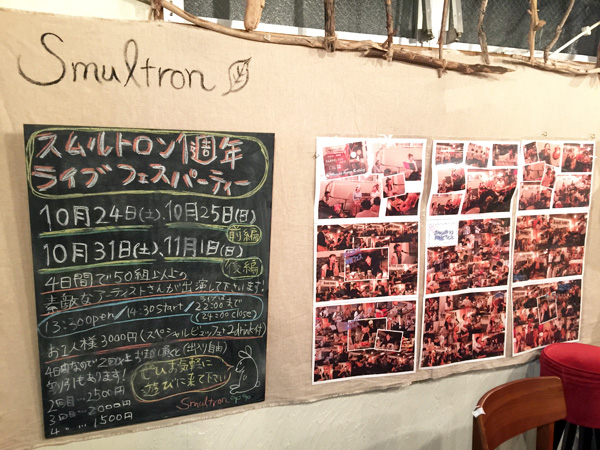 Smultron
スムルトロン1週年
ライブフェスパーティー
10月24日(土)、10月25日(日)
前編
10月31日(土)、11月1日(日)
後編
4日間で50組以上の
素敵なアーティストさんが出演して下さいます!
13:30open / 14:30start / 22:00まで
(24:00close)
お1人様3000円(スペシャルビュッフェ+2d付)
4日間なので2回以上お越し頂くと(出入り自由)
割引もあります!
2回目…2500円
3回目…2000円
4 〃 …1500円
ぜひお気軽に
遊びに来て下さい
Smultron